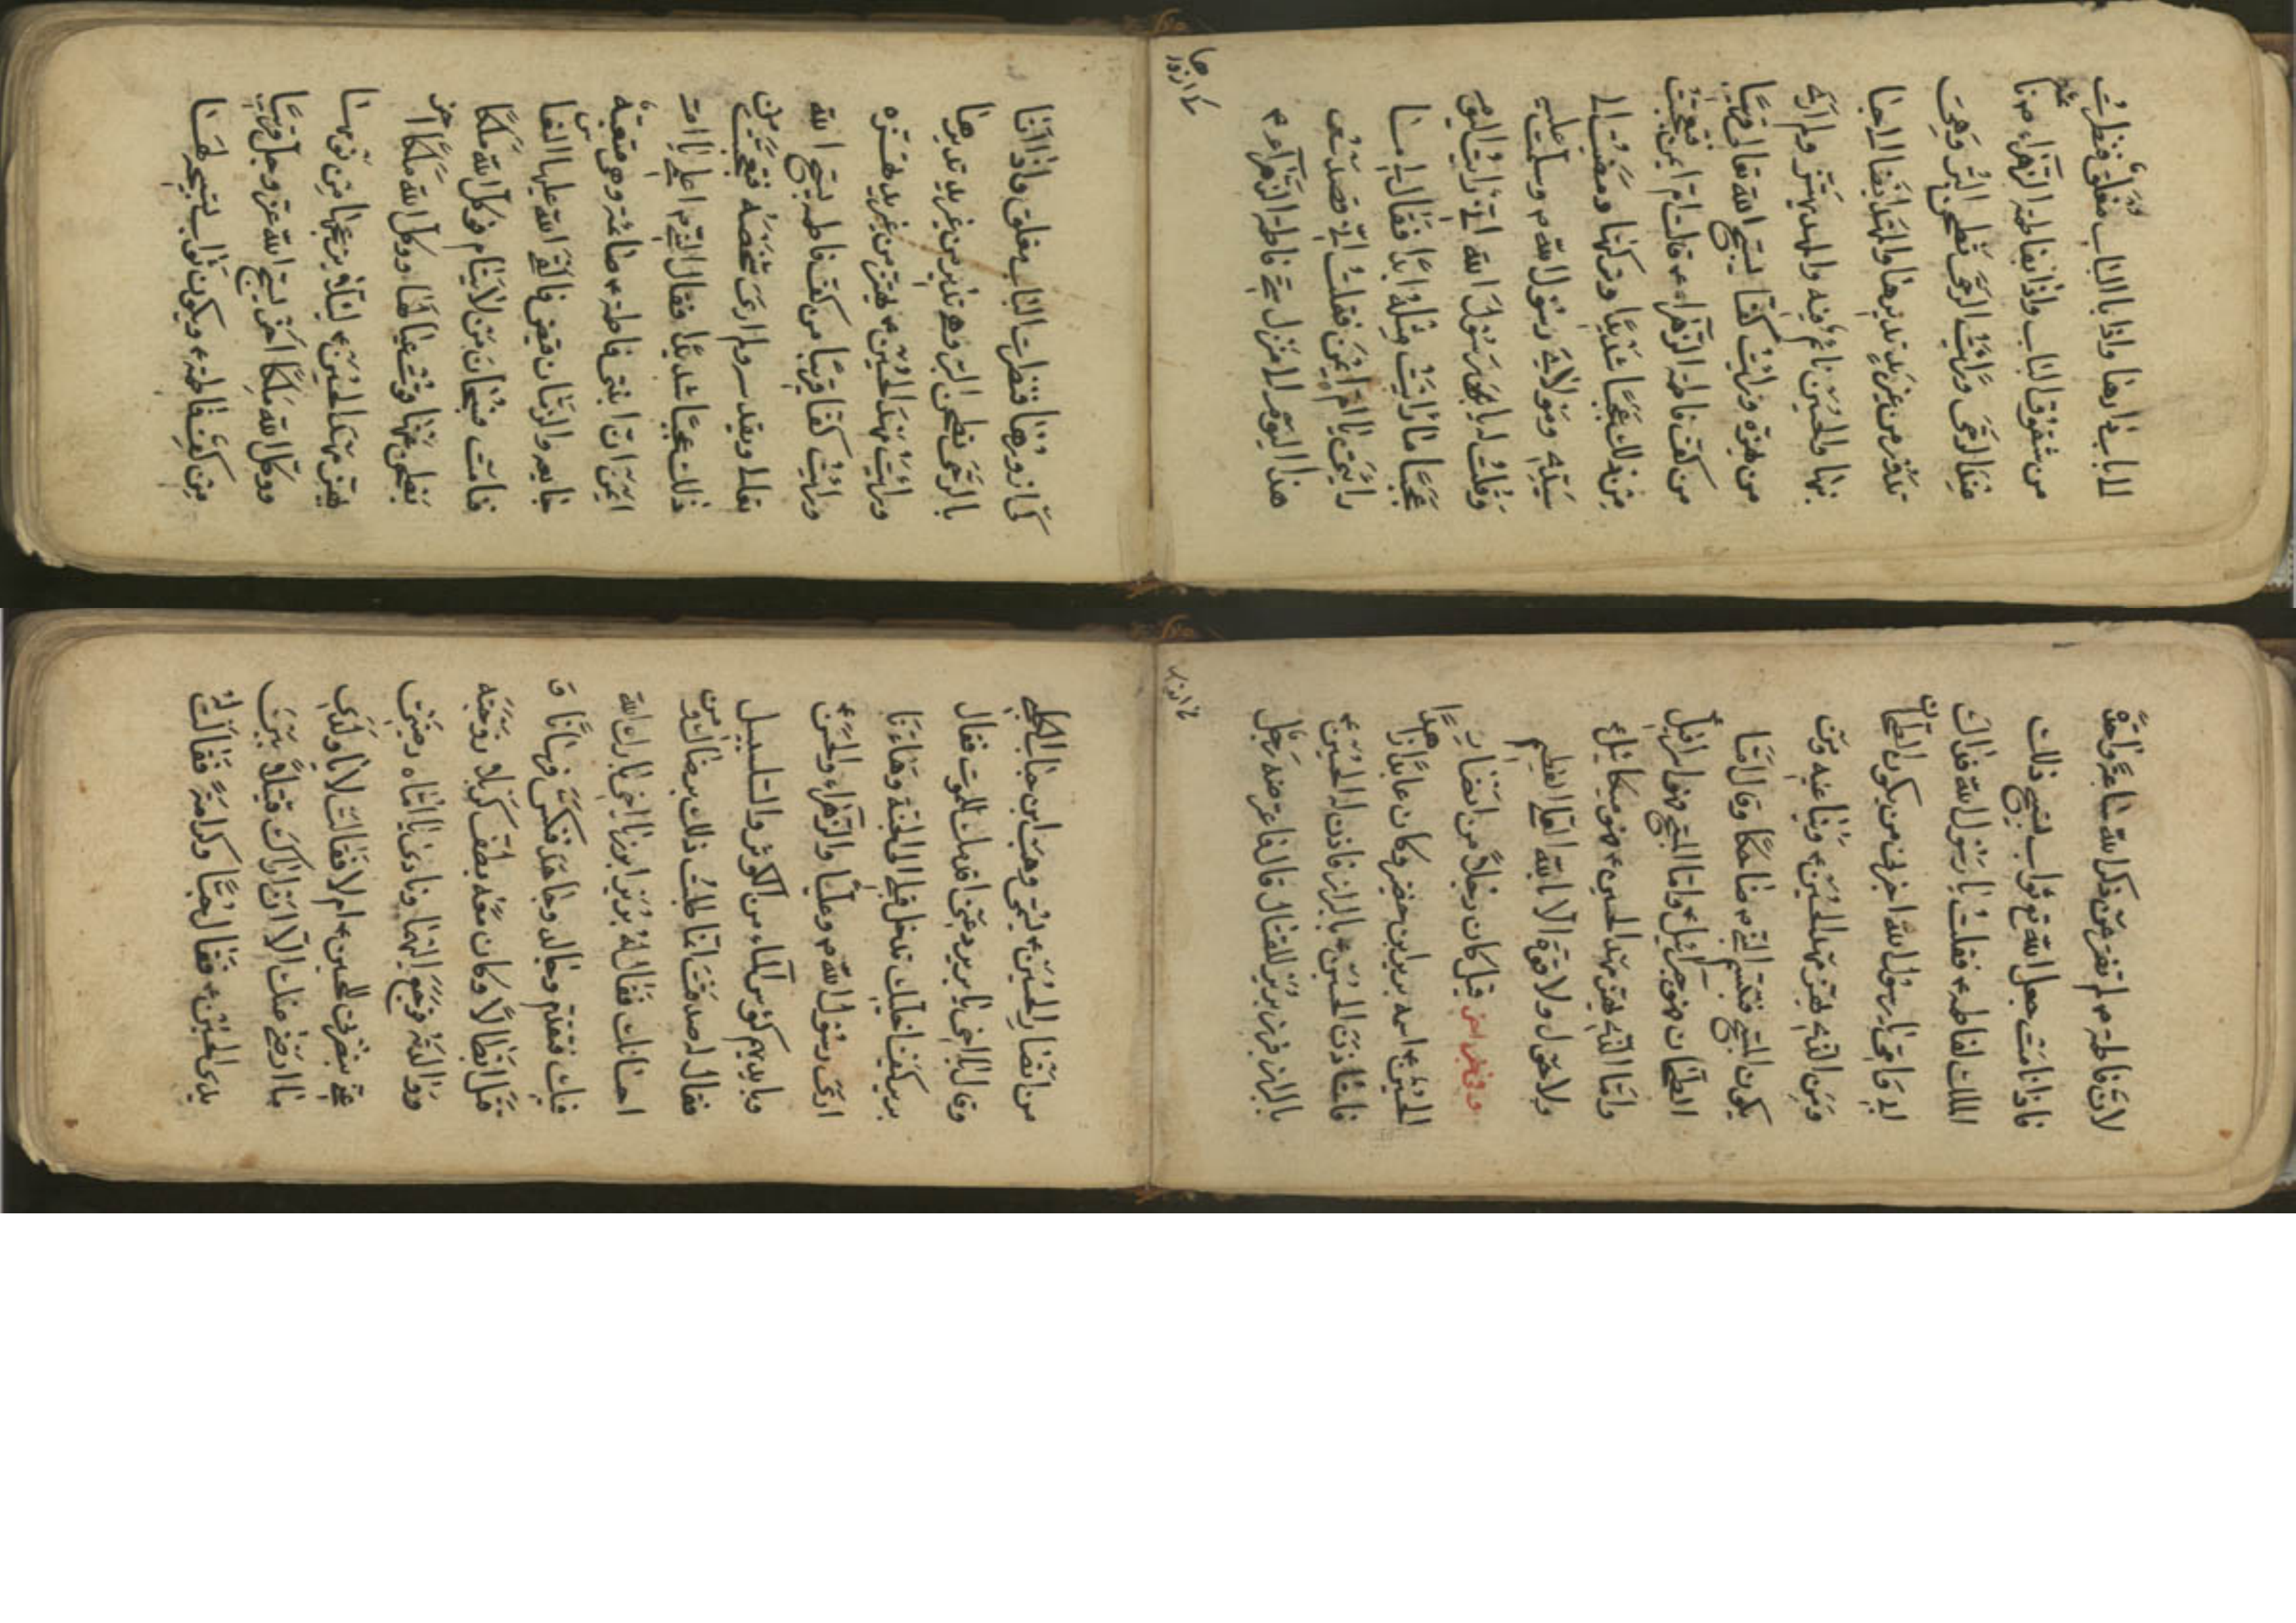 الى باب دارها واذا بالباب مغلق فنظرت
من شقوق الباب واذا بفاطمة الزهراء ع نائمة
الرحى ورايت الرحى تطحن البر وهي
تدور من غير يد تديرها والمهد ايضا الى جا
نبها والحسين نائم فيه والمهد يهتز ولم ار
من يهزه ورايت كفا يسبح الله تعالى قريبا
من كف فاطمة الزهراء ع قالت ام ايمن فتعجبت
من ذلك عجبا شديدا وتركتها ومضيت الى
سيدي ومولاي رسول الله ص وسلمت عليه
وقلت له يا رسول الله اني رايت اليوم
عجبا ما رايت مثله ابدا فقال لي ما
رايتي يا ام ايمن فقلت اني قصدت
هذا اليوم الى منزل ستي فاطمة الزهراء ع
واذا انا
بالرحى تطحن البر وهي تدور من غير يد تديرها
ورايت مهد الحسين ع يهتز من غير يد تهزه
ورايت كفا قريبا من كف فاطمة يسبح الله
ولم ارى شخصه فتعجبت من
ذلك عجبا شديدا فقال النبي ص اعلمي يا ام
ايمن ان ابنتي فاطمة ع صائمة وهي متعبة
جايعة والزمان قيض فالقى الله عليها النعاس
فنامت فسبحان من لا ينام فوكل الله ملكا
يطحن عنها قوت عيالها ووكل الله ملكا اخر
يهز مهد الحسين ع ليلا يزعجها من نومها
ووكل الله ملكا اخر يسبح الله عز وجل قريبا
من كف فاطمة ع ويكون ثواب تسبيحه لها
لان فاطمة ع لم تفتر عن ذكر الله ساعة واحدة
فاذا نامت جعل الله ثواب تسبيح ذلك
الملك لفاطمة ع فقلت يا رسول الله فداك
ابي وامي يا رسول الله اخبرني من يكون الطحان
ومن الذي يهز مهد الحسين ع ويناغيه ومن
يكون المسبح فتبسم النبي ص ضاحكا وقال اما
الطحان فهو جبرائيل ع واما المسبح فهو اسرافيل
واما الذي يهز مهد الحسين ع فهو ميكائيل
ولا حول ولا قوة الا بالله العلي العظيم
قيل كان رجلا من انصار
الحسين ع اسمه برير ابن خضير وكان عابدا زاهدا
فاستاذن الحسين ع بالبراز فاذن له الحسين ع
بالبراز فبرز برير للقتال قال فاعترضه رجل
من انصار الحسين ع يسمى وهب ابن حباب الكلبي
وقال يا اخي يا برير دعني اقدمك للموت فقال
برير كيف اخليك تدخل قبلي الى الجنة وها انا
ارى رسول الله ص وعليا والزهراء والحسن ع
وبايديهم كؤس الماء من الكوثر والسلسبيل
فقال له صدقت انا طلبت ذلك برضائك ومن
احسانك فقال له برير ابرز يا اخي بارك الله
فيك فتقدم وجالد وجاهد فنكس فرسانا و
قتل ابطالا وكان معه بطف كربلا زوجته
ووالدته فرجع اليهما ونادى يا اماه رضيتي
عني بنصرتي للحسين ع ام لا فقالت لا يا ولدي
ما ارضى عنك الا ان اراك قتيلا بين
يدي الحسين ع فقال حبا وكرامة فقالت له